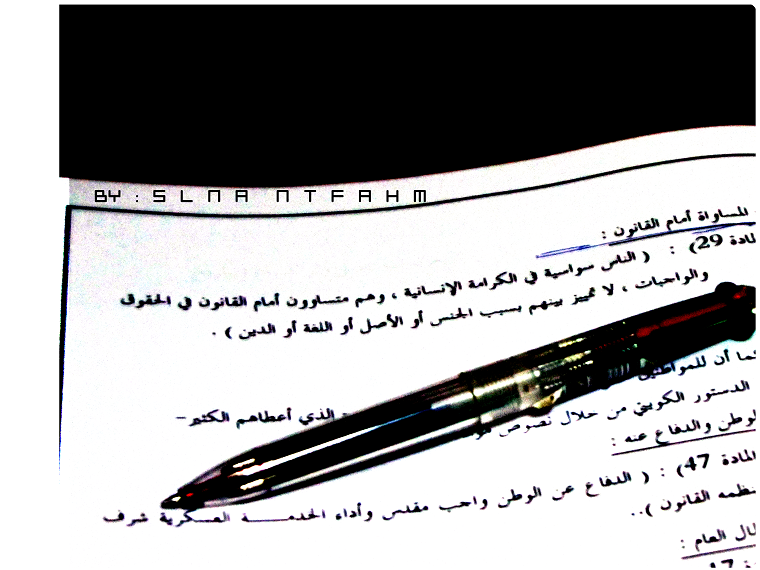 BY : SLNA NTFAHM
المساواة أمام القانون :
المادة 29) : ( الناس سواسية في الكرامة الإنسانية ، وهم متساوون أمام القانون في الحقوق
والواجبات ، لا تمييز بينهم بسبب الجنس أو الأصل أو اللغة أو الدين ) .
كما أن للمواطنين
الذي أعطاهم الكثير-
الدستور الكويتي من خلال نصوص
الوطن والدفاع عنه :
المادة 47) : ( الدفاع عن الوطن واجب مقدس وأداء الخدمة العسكرية شرف
ينظمه القانون )..
المال العام :